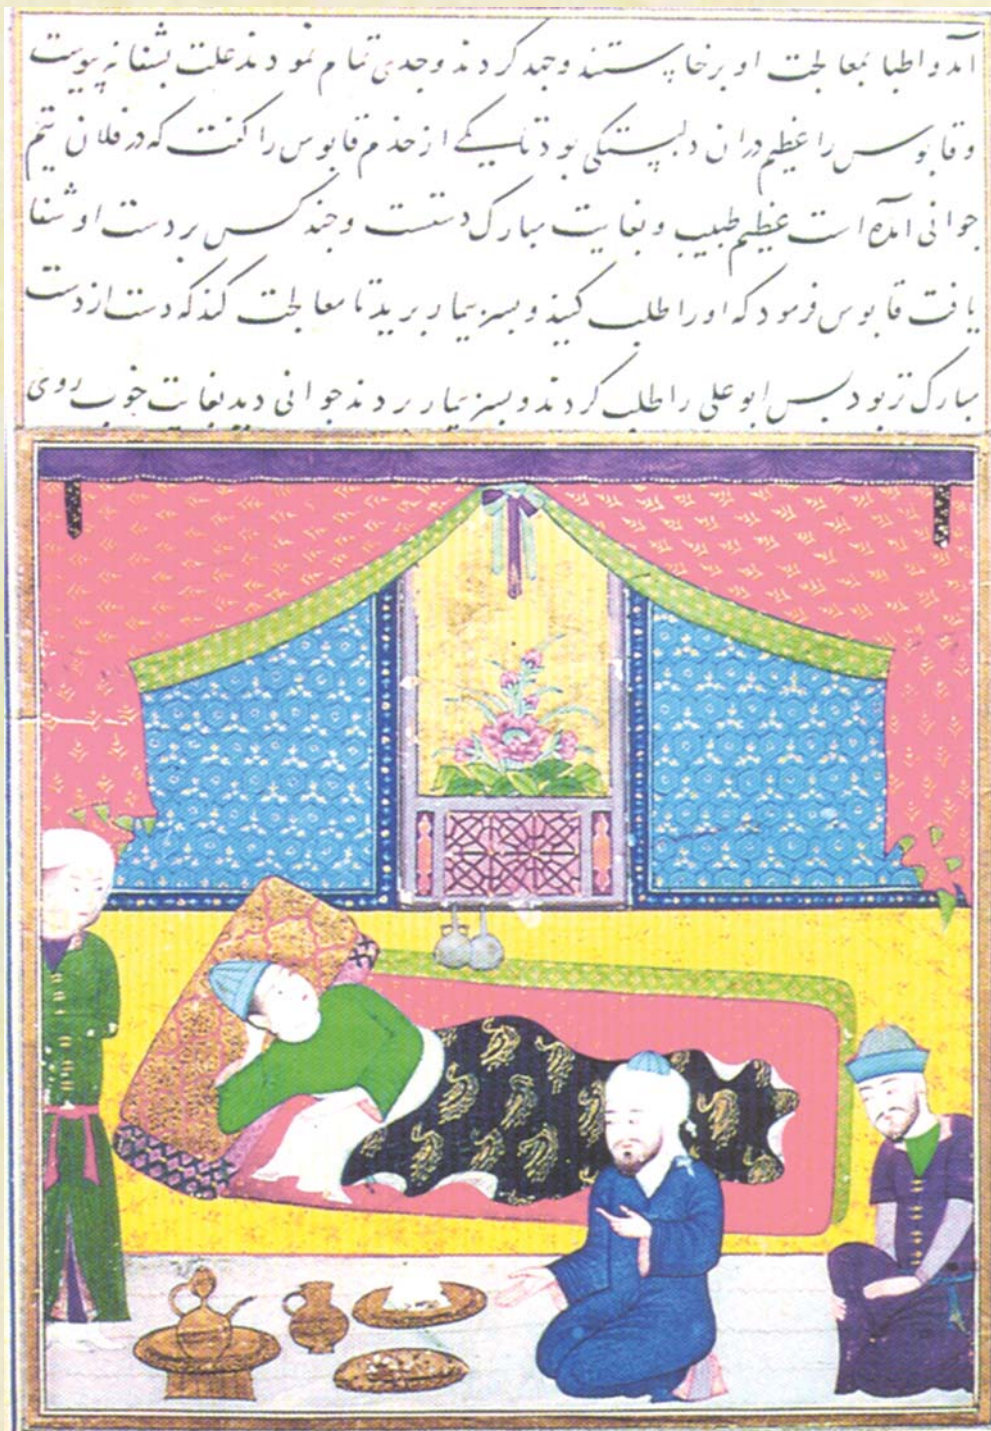 آمد و اطبا بمعالجت او برخاستند و جهد کردند و جدی تمام نمودند علت بشفا نه پیوست
و قابوس را عظیم دران دلبستگی بود تا یکی از خدم قابوس را گفت که در فلان تیم
جوانی آمده است عظیم طبیب و بغایت مبارک دستست و چند کس بر دست او شفا
یافت قابوس فرمود که او را طلب کنید و بسر بیمار برید تا معالجت کند که دست از دست
مبارک تر بود پس ابو علی را طلب کردند و بسر بیمار بردند جوانی دید بغایت خوب روی